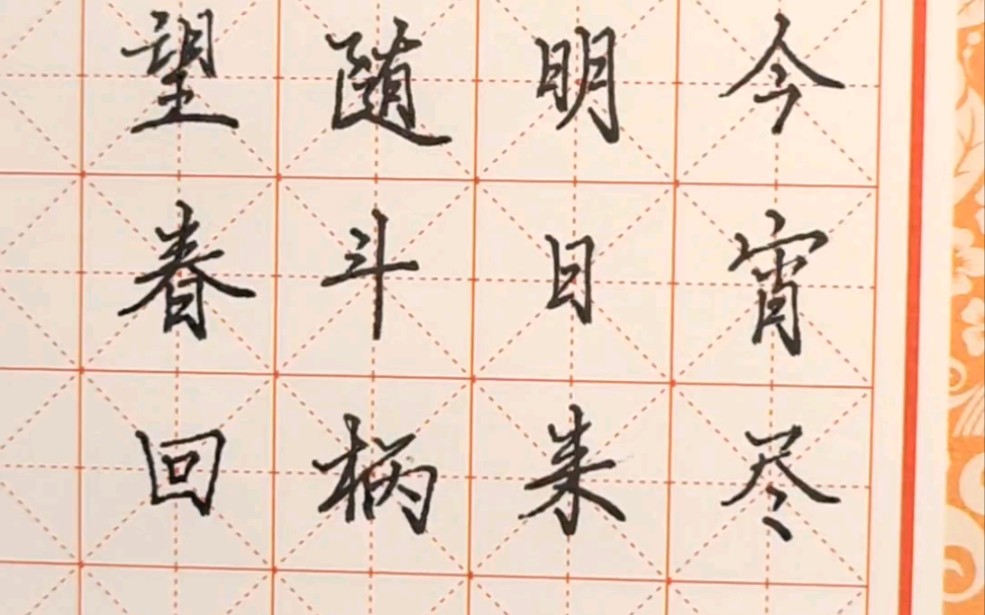 今宵尽
明日来
随斗柄
望春回